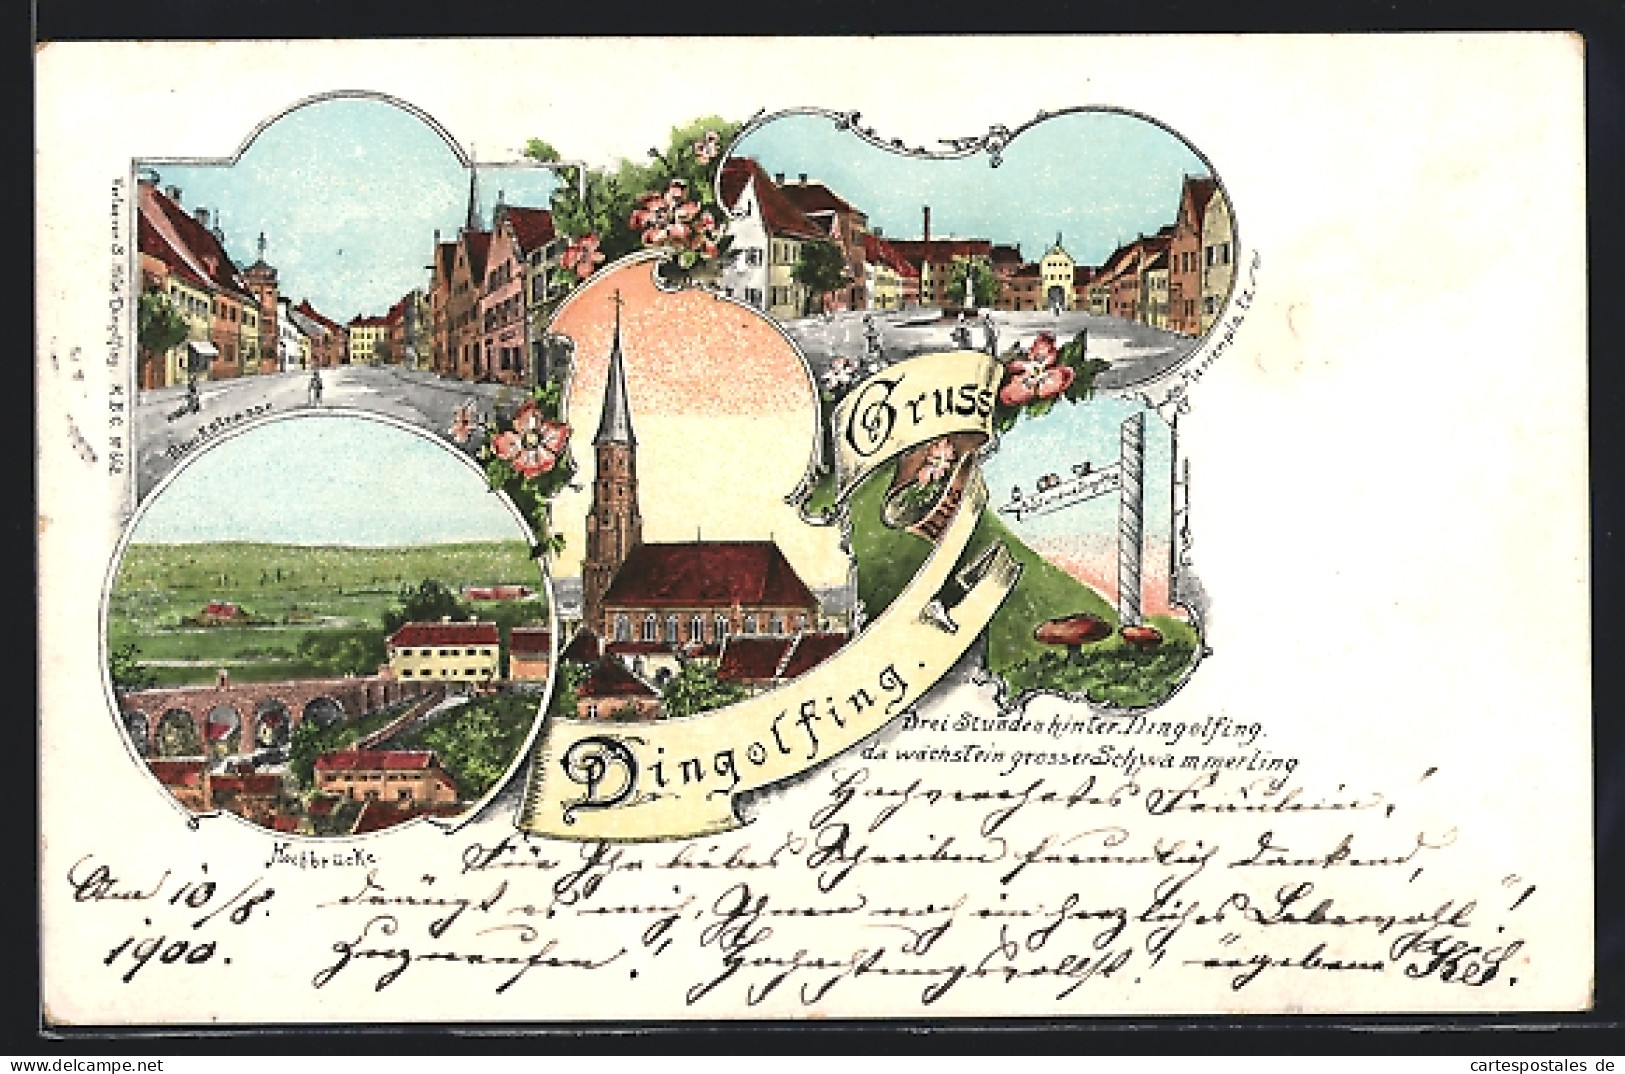 Gruss
aus
Dingolfing.
Hochbrücke
Drei Stunden hinter Dingolfing.
da wachst ein grosser Schwammerling
Hochverehrtes Fräulein!
Für Ihr liebes Schreiben freundlich dankend,
Am 10/8. drängt es mich, Ihnen noch ein herzliches "Lebewohl"!
1900. zuzurufen! Hochachtungsvollst! ergebene
cartespostales de